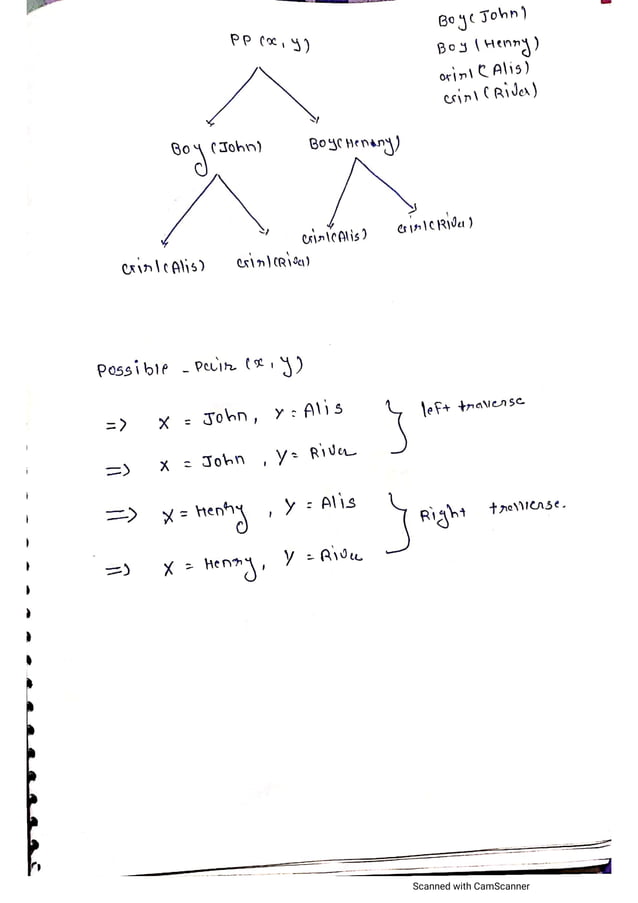 PP (x, y)
Boy (John)
Boy (Henry)
Girl (Alis)
Girl (River)
Boy (John)
Boy (Henry)
Girl (Alis)
Girl (River)
Girl (Alis)
Girl (River)
Possible - Pair (x, y)
=> X = John, Y = Alis
left traverse
=> X = John, Y = River
=> X = Henry, Y = Alis
Right traverse.
=> X = Henry, Y = River
Scanned with CamScanner